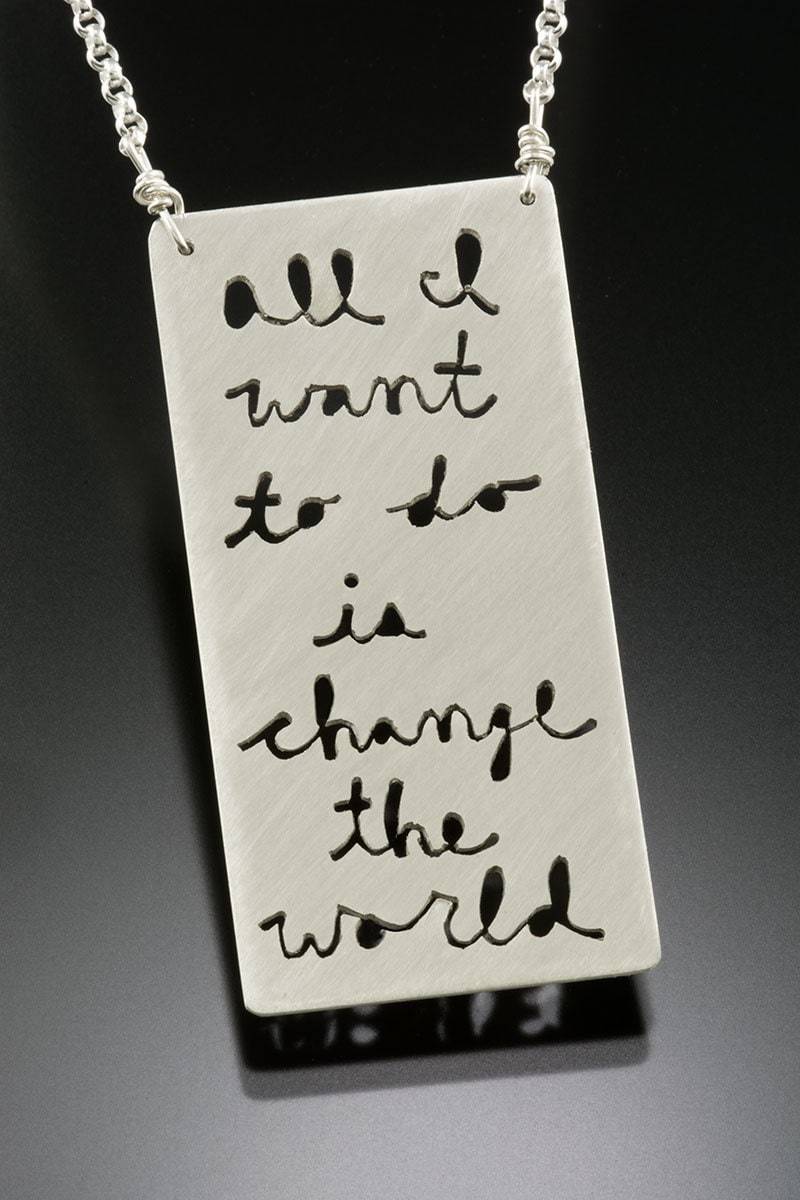 all I
want
to do
is
change
the
world